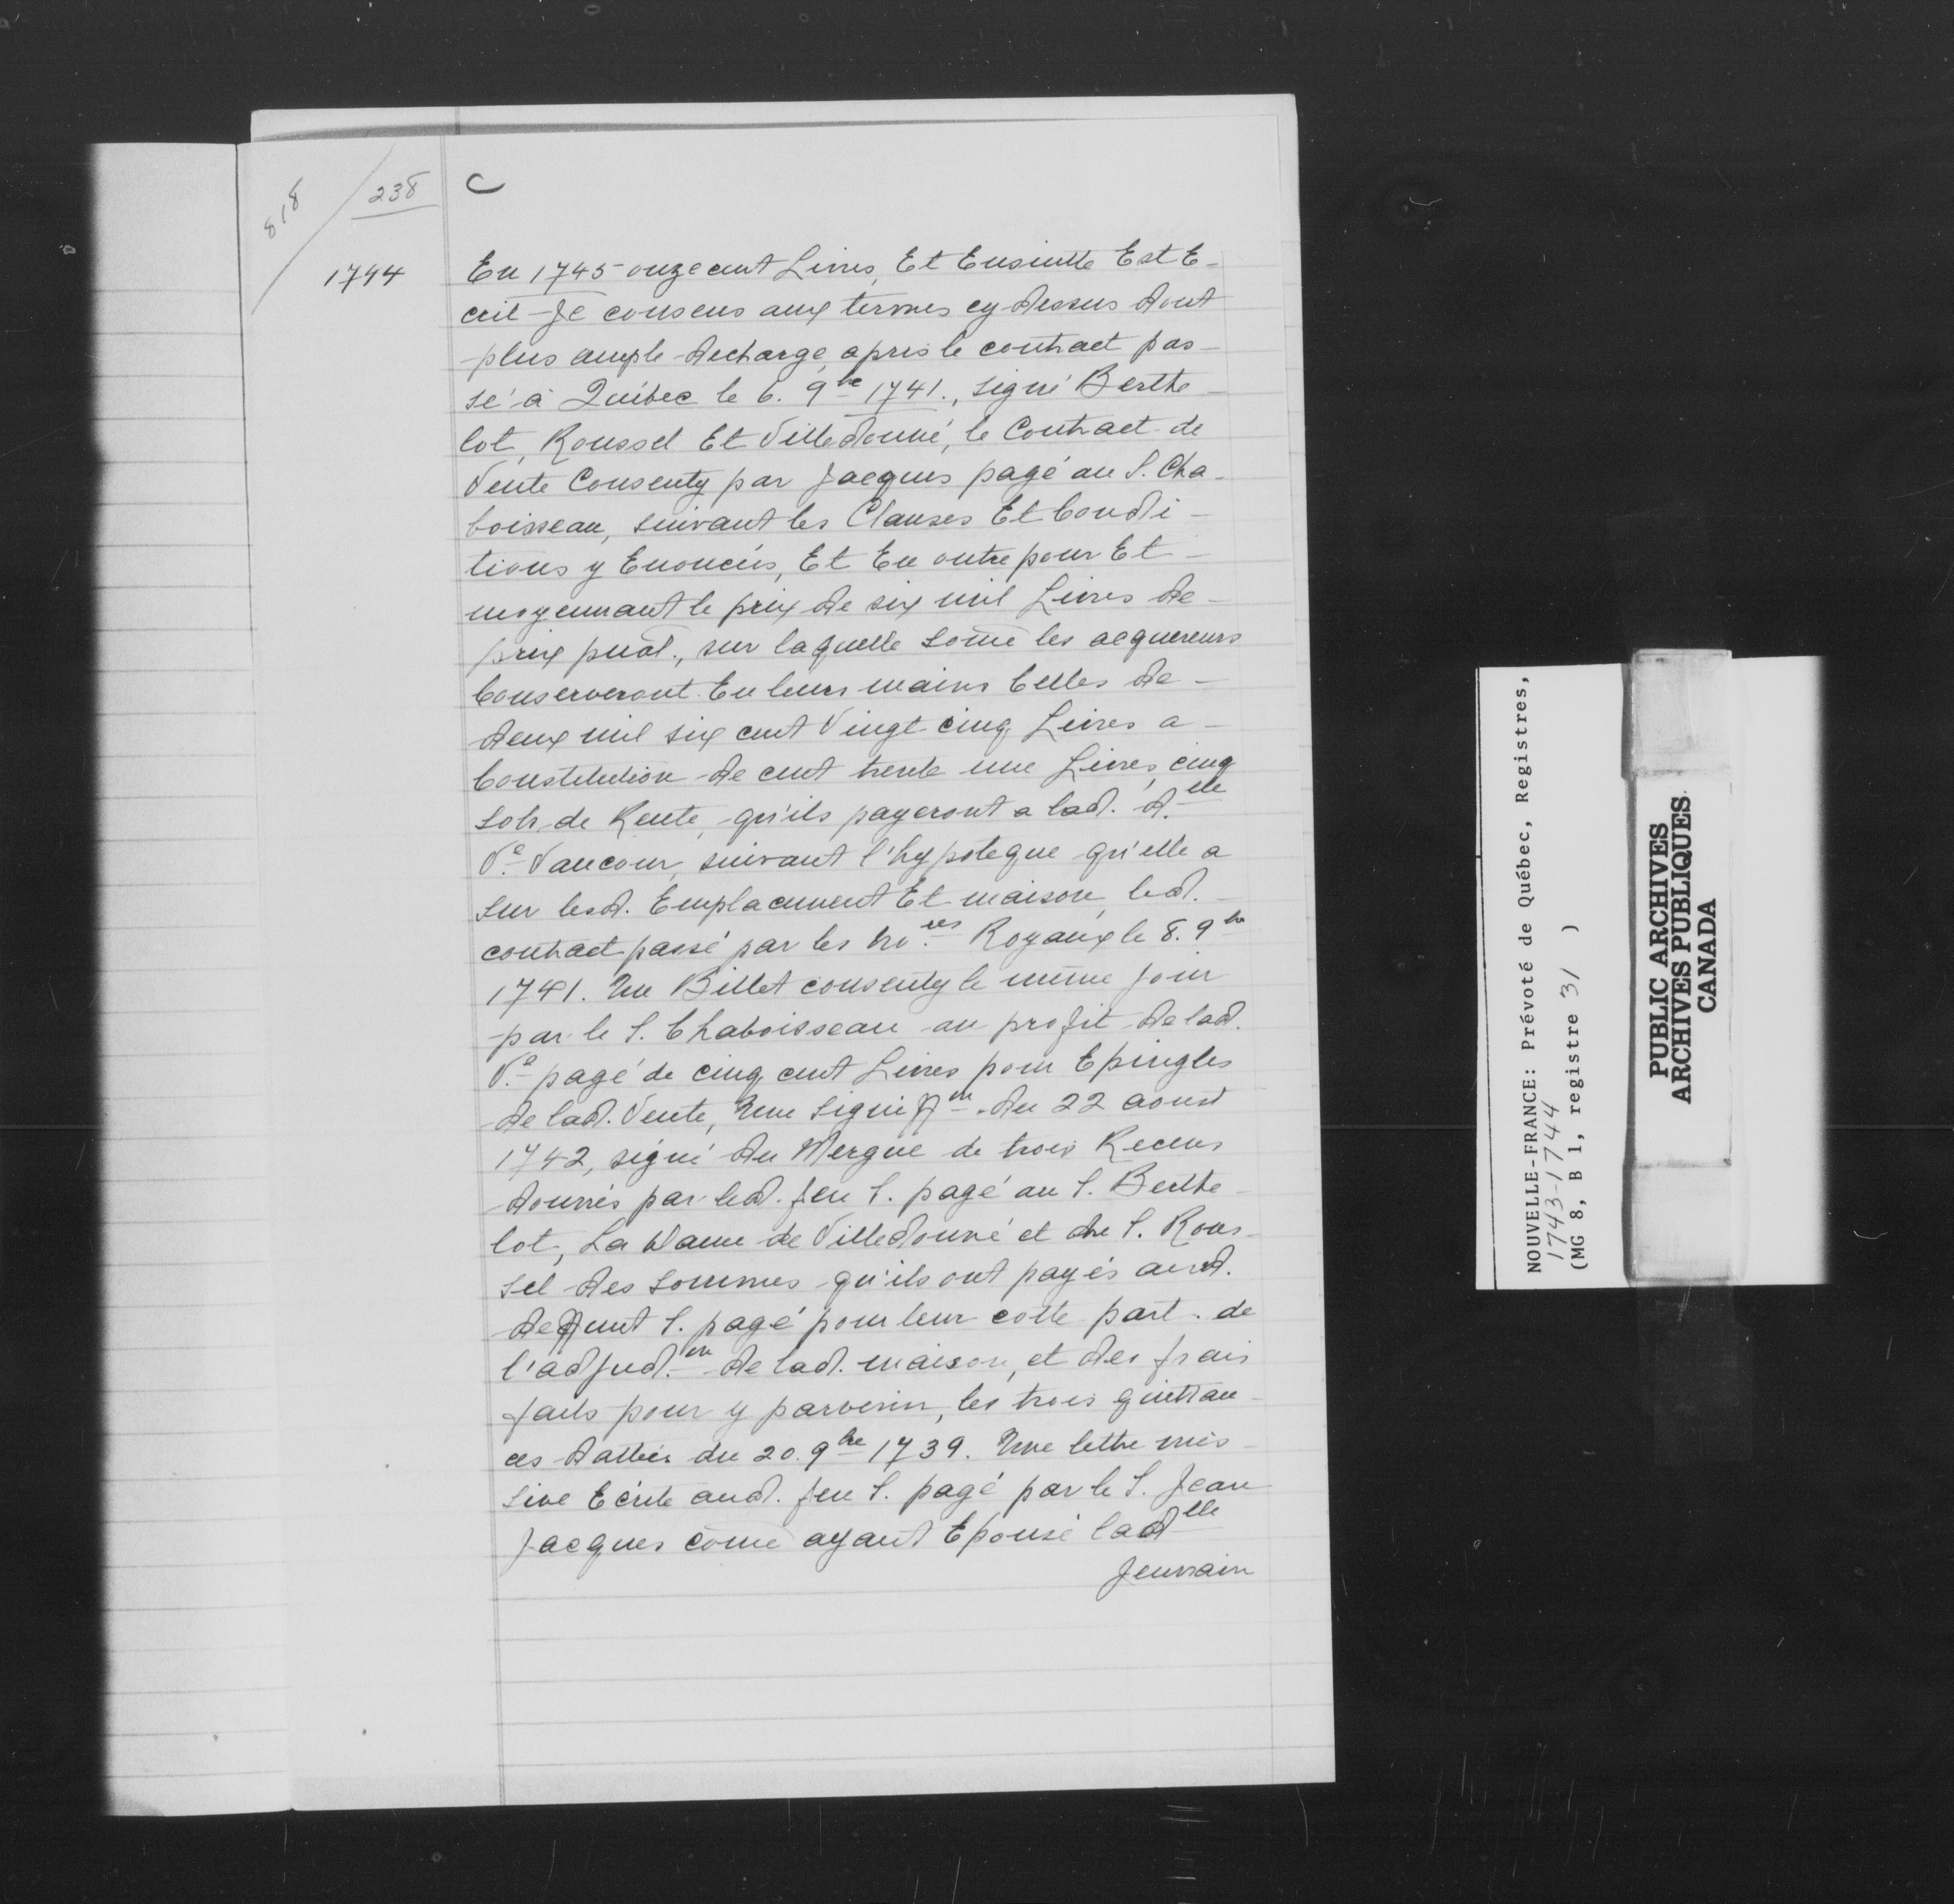 818
238
C
1744
En 1745 onze cent Livres, Et Ensuitte Est E-
crit - Je consens aux termes cy dessus dont
plus ample decharge, apres le contract pas-
sé à Québec le 6. 9bre 1741., signé Berthe-
lot, Roussel Et Villedonné, le Contract de
Vente Consenty par Jacques pagé au S. Cha-
boisseau, suivant les Clauses Et Condi-
tions y Enoncées, Et En outre pour Et -
moyennant le prix de six mil Livres de -
prix pnal., sur laquelle some les acquereurs
Conserveront En leurs mains Celles de -
deux mil six cent Vingt cinq Livres a -
Constitution de cent trente une Livres, cinq
sols de Rente, qu'ils payeront a lad. d.elle
Ve. Vancour, suivant l'hypoteque qu'elle a
sur lesd. Emplacement Et maison, led. -
contract passé par les no.res Royaux le 8. 9bre
1741. Un Billet consenty le même jour
par le S. Chaboisseau au profit de lad.
Ve. pagé de cinq cent Livres pour Epingles
de lad. Vente, Une Signiffon. du 22 aoust
1742, signé du Mergue de trois Recens
donnés par led. feu S. pagé au S. Berthe-
lot, La Dame de Villedonné et du S. Rous-
sel des sommes qu'ils ont payés aud.
deffunt S. pagé pour leur cotte part. de
l'adjud.on de lad. maison, et des frais
faits pour y parvenir, les trois quittan-
ces dattées du 20. 9bre 1739. Une lettre mis-
sive Ecrite aud. feu S. pagé par le S. Jean
Jacques come ayant Epousé lad elle
Jeunrain
NOUVELLE-FRANCE: Prévoté de Québec, Registres,
1743-1744
(MG 8, B 1, registre 31 )
PUBLIC ARCHIVES
ARCHIVES PUBLIQUES
CANADA